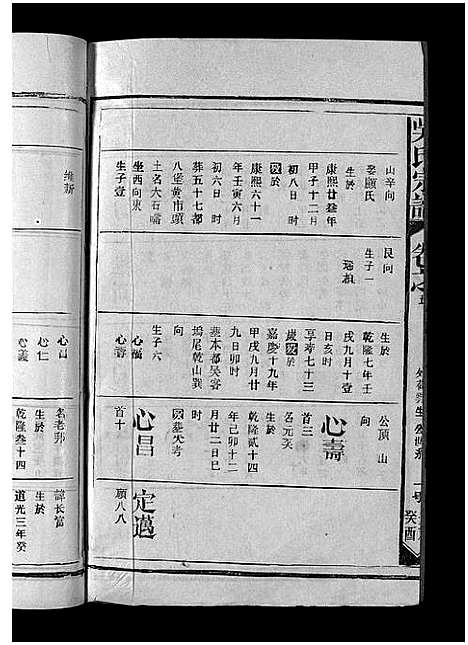 吴氏宗譜
癸酉
山辛向
娶顧氏
生於
康熙廿叁年
甲子十二月
初八日時
歿於
康熙六十一
年壬寅六月
初六日時
葬五十七都
八堡黄市頭
土名大石嘴
坐西向東
生子壹
艮向
生子一
生於
乾隆七年壬
戌九月十壹
日亥時
享年七十三
歲歿於
嘉慶十九年
甲戌九月廿
九日卯時
葬本都吴家
塢尾乾山巽
向
生子六
心福
心壽
公頂山
向
心壽
首三
名元芠
生於
乾隆貳十四
年己卯十二
月廿二日巳
時
歿葬失考
心昌
首十
定邁
願八八
維新
心昌
心仁
心義
名老郭
生於
乾隆叁十四
諱长富
生於
道光三年癸